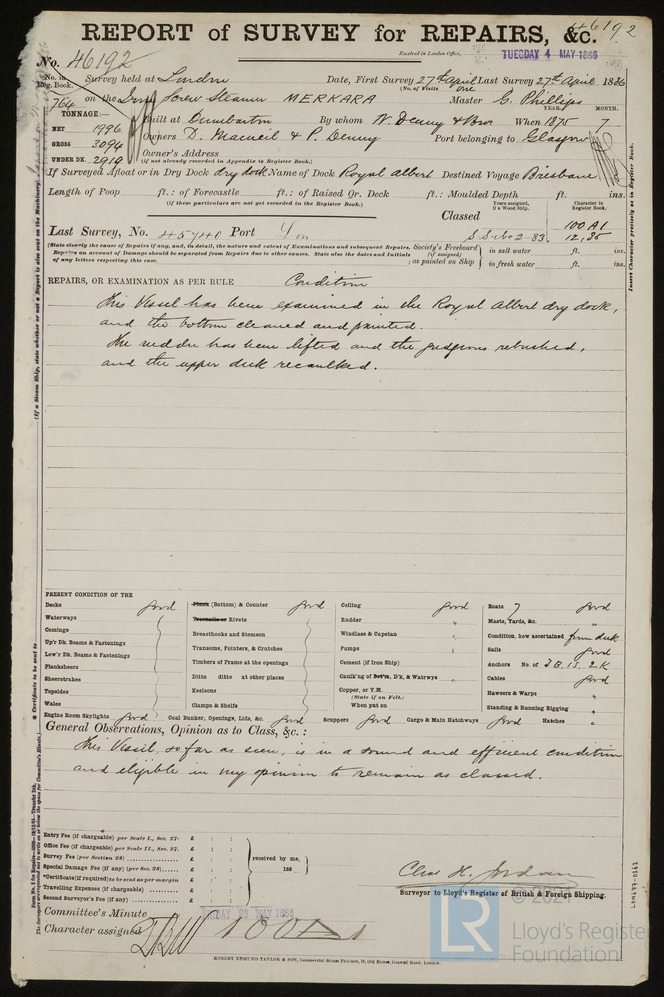 46192
REPORT of SURVEY for REPAIRS, &c.
Received in London Office,
TUESDAY 4 MAY 1886
No. 46192
No. in Reg. Book. Survey held at London Date, First Survey 27th April Last Survey 27th April 1886
(No. of Visits one)
764 on the Iron Screw Steamer MERKARA Master G. Phillips
TONNAGE:— YEAR. MONTH.
Built at Dumbarton By whom W. Denny & Bros When 1875 7
NET 1996
GROSS 3094 Owners D. Macneil & P. Denny Port belonging to Glasgow
UNDER DK. 2919 Owner's Address
(if not already recorded in Appendix to Register Book.)
If Surveyed Afloat or in Dry Dock dry dock Name of Dock Royal Albert Destined Voyage Brisbane
Length of Poop ft.: of Forecastle ft.: of Raised Qr. Deck ft.: Moulded Depth ft. ins.
(if these particulars are not yet recorded in the Register Book.)
Years assigned, if a Wood Ship. Character in Register Book.
Classed
100 A1
Last Survey, No. 45940 Port Lon S.S. No 2-83. 12,85
(State clearly the cause of Repairs if any, and, in detail, the nature and extent of Examinations and subsequent Repairs.
Repairs on account of Damage should be separated from Repairs due to other causes. State also the dates and Initials
of any letters respecting this case.
Society's Freeboard (if assigned) as painted on Ship
in salt water ft. ins.
in fresh water ft. ins.
REPAIRS, OR EXAMINATION AS PER RULE Condition
This Vessel has been examined in the Royal Albert dry dock,
and the bottom cleaned and painted.
The rudder has been lifted and the pudgeons rebushed,
and the upper deck recaulked.
PRESENT CONDITION OF THE
Decks good
Waterways
Comings
Up'r Dk. Beams & Fastenings
Low'r Dk. Beams & Fastenings
Planksheers
Sheerstrakes
Topsides
Wales
Engine Room Skylights good
Plank (Bottom) & Counter good
Treenails or Rivets
Breasthooks and Stemson
Transoms, Pointers, & Crutches
Timbers of Frame at the openings
Ditto ditto at other places
Keelsons
Clamps & Shelfs
Coal Bunker, Openings, Lids, &c. good
Ceiling good
Rudder "
Windlass & Capstan "
Pumps "
Cement (if Iron Ship) "
Caulk'ng of Bot'm, D'k, & Watrwys "
Copper, or Y.M.
(State if on Felt.)
When put on
Scuppers good Cargo & Main Hatchways good Hatches "
Boats 7 good
Masts, Yards, &c. "
Condition, how ascertained from deck
Sails good
Anchors No. of 3 B. 1 S. 2 K
Cables good
Hawsers & Warps "
Standing & Running Rigging "
General Observations, Opinion as to Class, &c.:
This Vessel, so far as seen, is in a sound and efficient condition
and eligible in my opinion to remain as classed.
Entry Fee (if chargeable) per Scale I., Sec. 27- £ : :
Office Fee (if chargeable) per Scale II., Sec. 27. £ : :
Survey Fee (per Section 28) £ : :
Special Damage Fee (if any) (per Sec. 28) £ : :
*Certificate (if required) to be sent as per margin £ : :
Travelling Expenses (if chargeable) £ : :
Second Surveyor's Fee (if any) £ : :
received by me,
188
Chas H. Jordan
Surveyor to Lloyd's Register of British & Foreign Shipping.
Committee's Minute
MAY 1886
Character assigned 100A1
ROBERT EDMUND TAYLOR & SON, Commercial Steam Printers, 19, Old Street, Goswell Road, London.
Insert Character precisely as in Register Book.
(If a Steam Ship, state whether or not a Report is also sent on the Machinery)
LR
© 2021
Lloyd's Register
Foundation